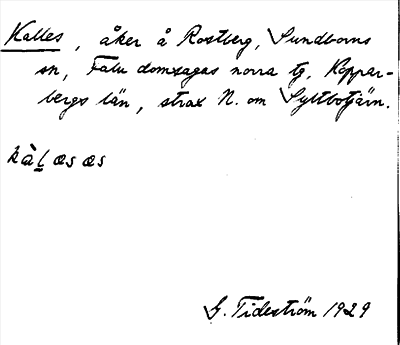 Kalles, åker å Rostberg, Sundborns
sn, Falu domsagas norra tg, Koppar-
bergs län, strax N. om Syltbotjärn.
kàl̠ æs æs
G. Tideström 1929